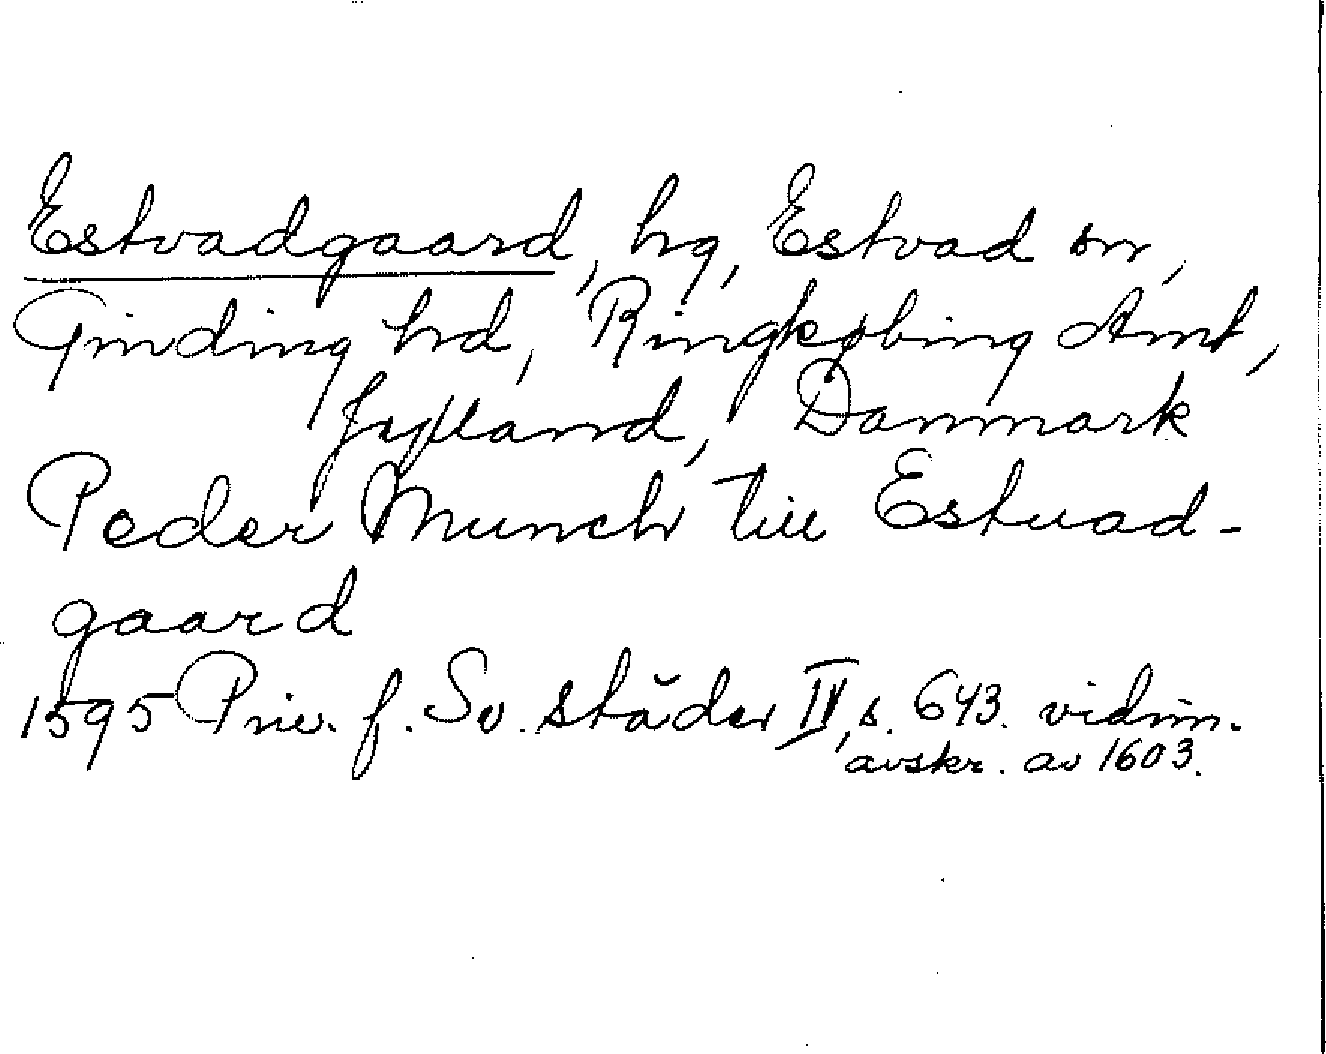 Estvadgaard, hg, Estvad sn,
Ginding hd, Ringkøbing Amt,
Jylland, Danmark
Peder Munch till Estuad-
gaard
1595 Priv. f. Sv. städer IV, s. 643. vidim.
avskr. av 1603.